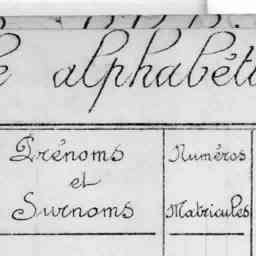 alphabéti
Prénoms
et
Surnoms
Numéros
Matricules